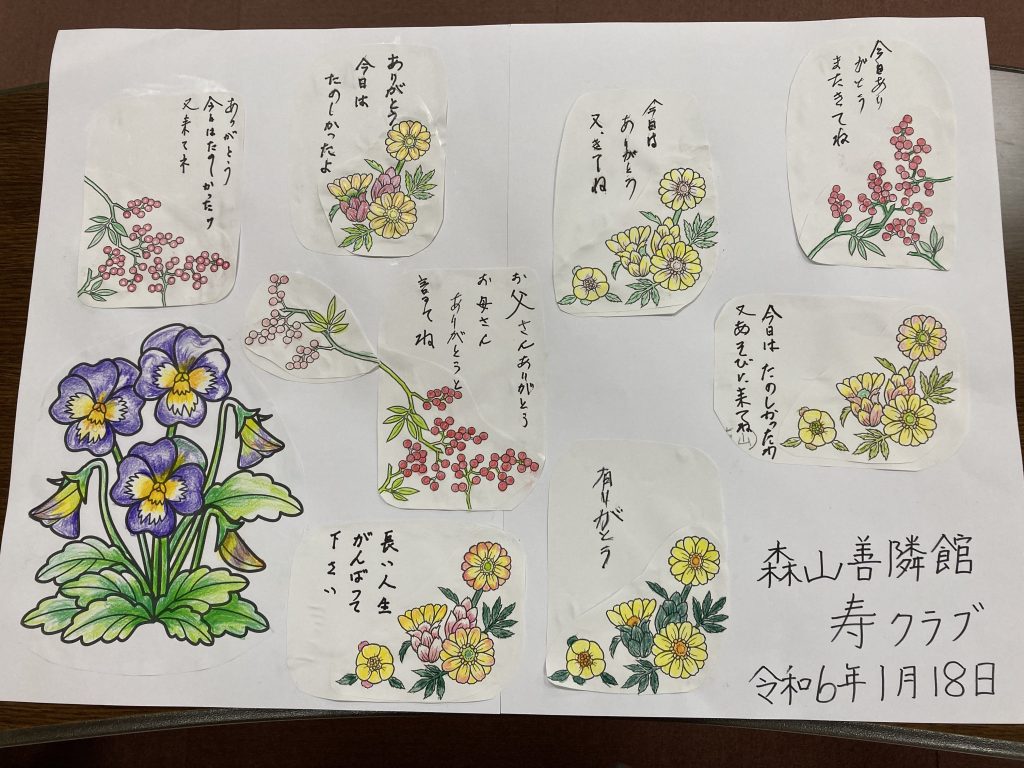 ありがとう
今日はたのしかったワ
又来てネ
ありがとう
今日は
たのしかったよ
今日は
ありがとう
又、きてね
今日あり
がとう
またきてね
お父さんありがとう
お母さん
ありがとうと
言ってね
今日は たのしかったわ
又あそびに来てね
長い人生
がんばって
下さい
有りがとう
森山善隣館
寿クラブ
令和6年1月18日